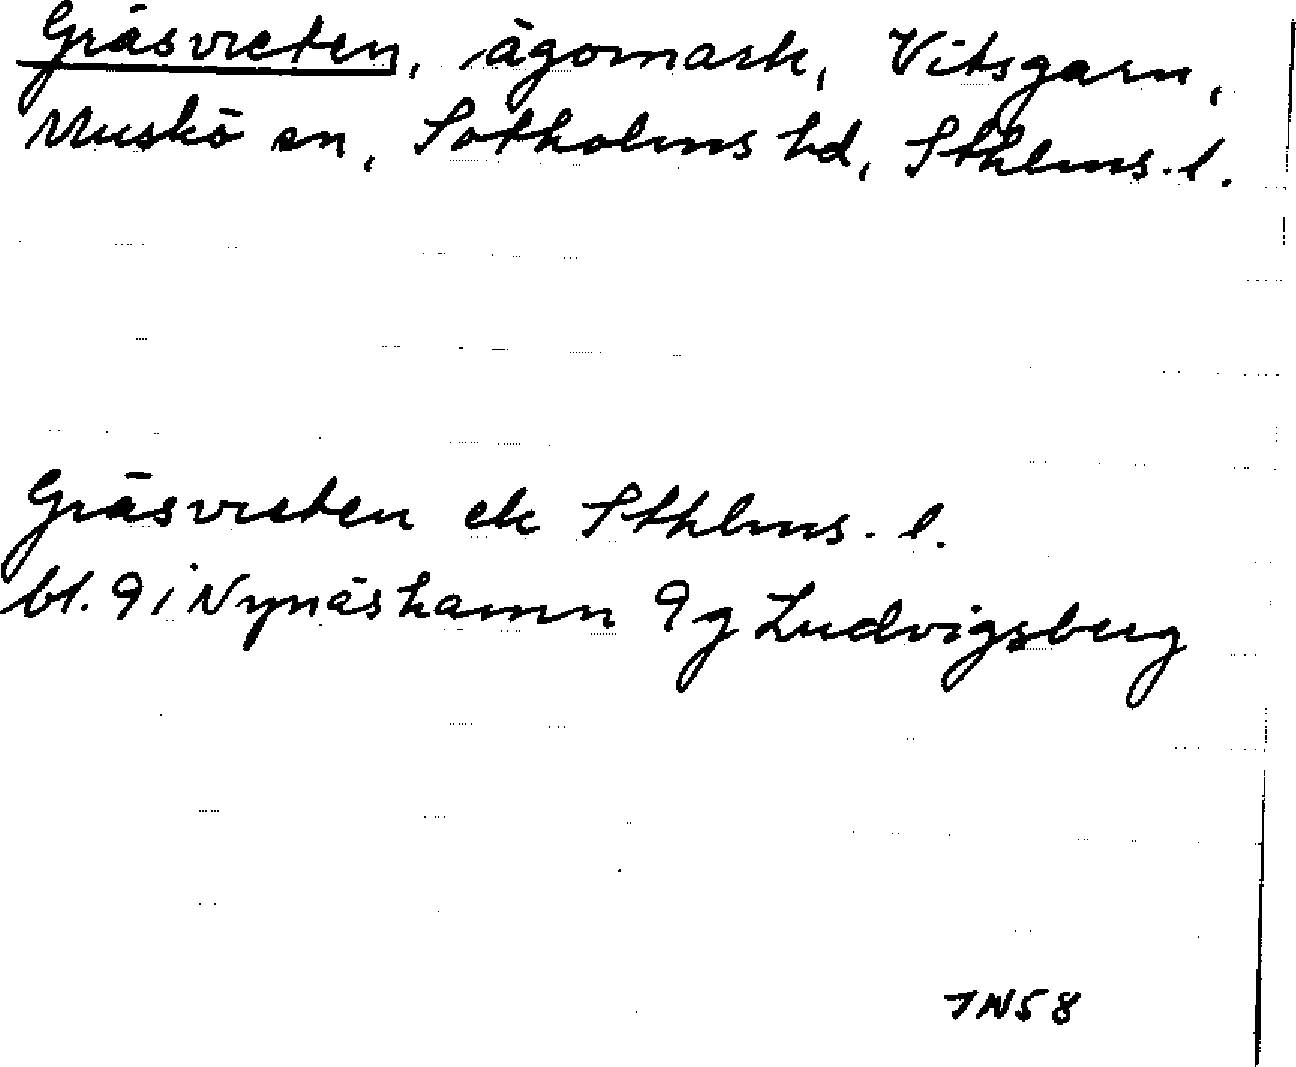 Gräsvreten, ägomark, Vitsgarn,
Muskö sn, Sotholms hd, Sthlms. l.
Gräsvreten ek Sthlms. l.
bl. 9 i Nynäshamn 9 g Ludvigsberg
JN58